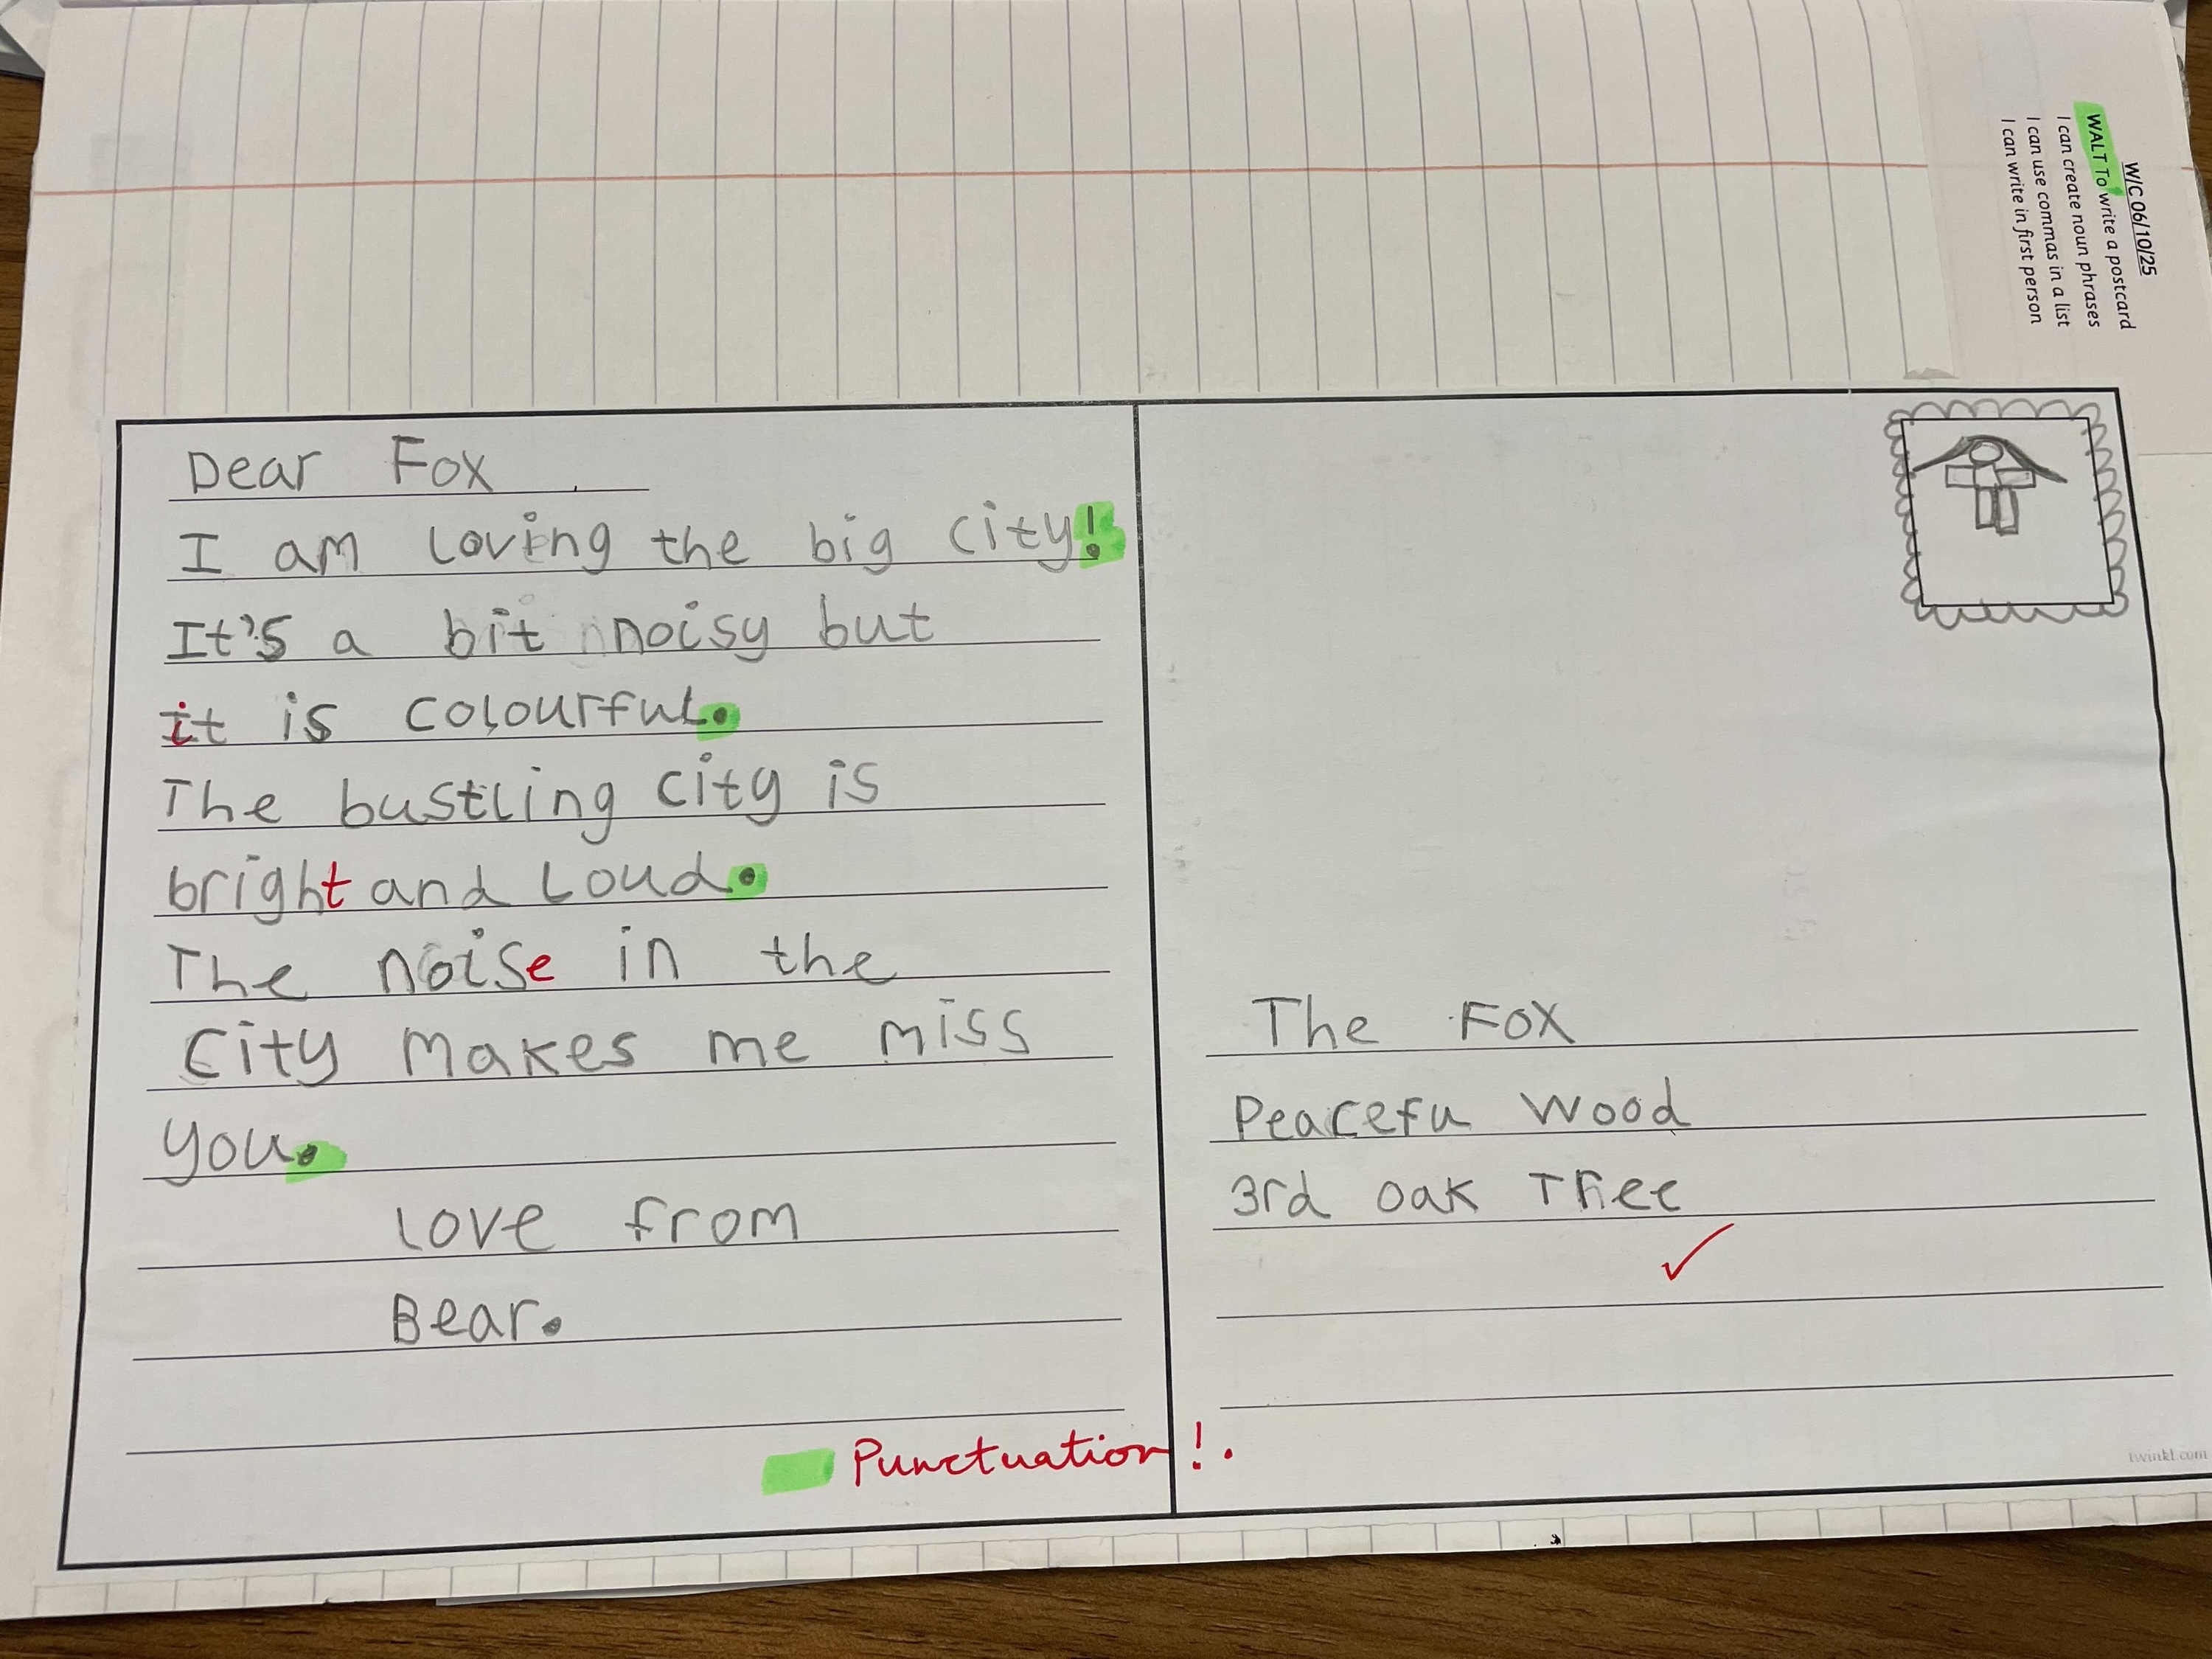 W/C 06/10/25
WALT To write a postcard
I can create noun phrases
I can use commas in a list
I can write in first person
Dear Fox
I am loving the big city!
It's a bit noisy but
it is colourful.
The bustling city is
bright and loud.
The noise in the
city makes me miss
you.
Love from
Bear.
The Fox
Peacefu Wood
3rd oak Tree
Punctuation !.
twinkl.com